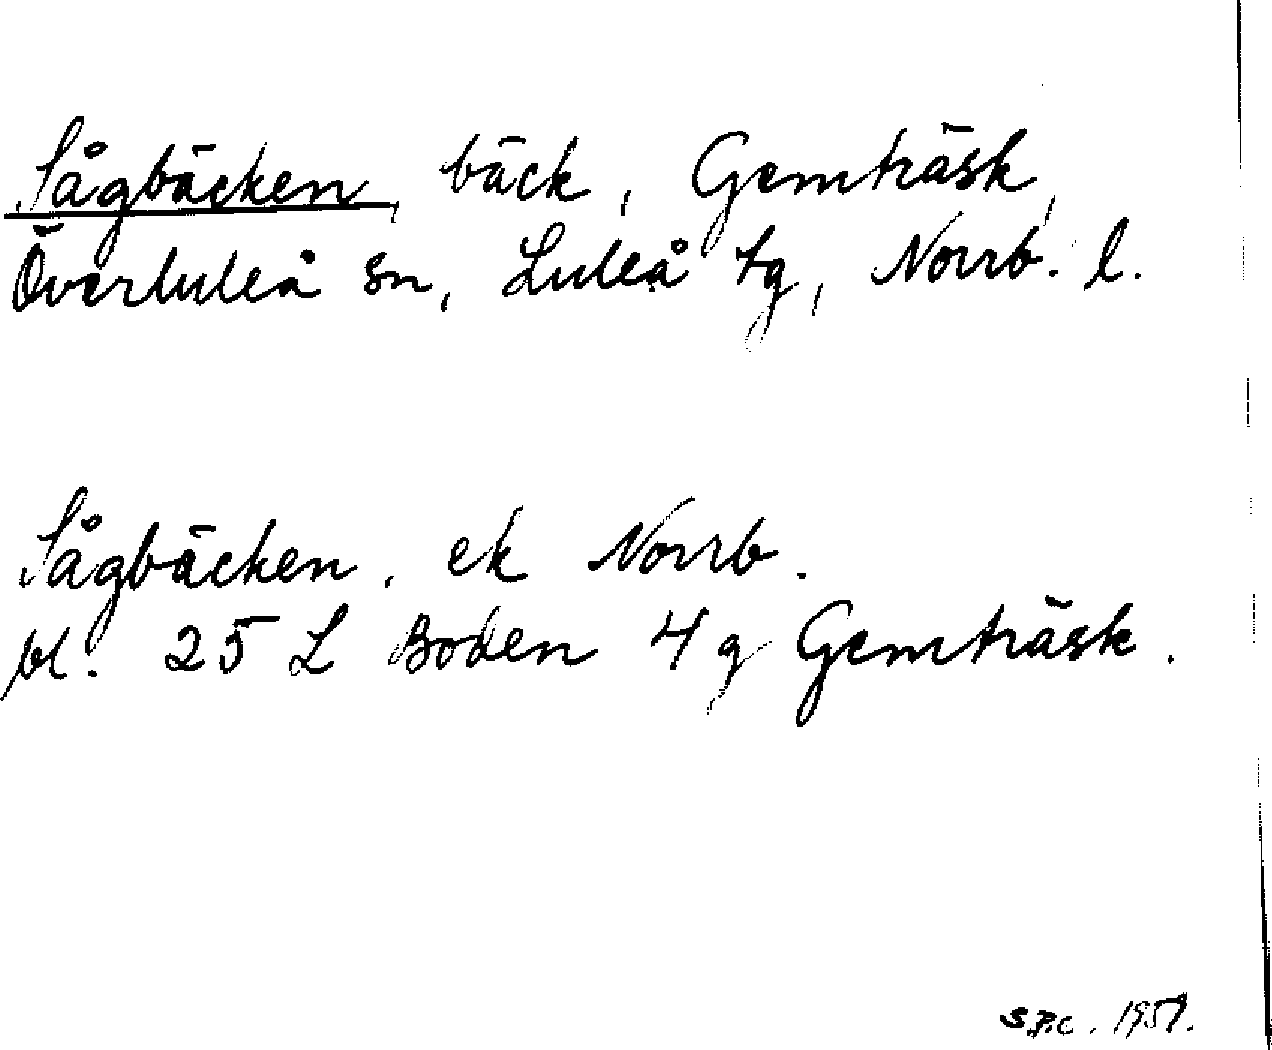 Sågbäcken, bäck, Gemträsk,
Överluleå sn, Luleå tg, Norrb. l.
Sågbäcken. ek Norrb.
bl. 25 L Boden 4 g Gemträsk.